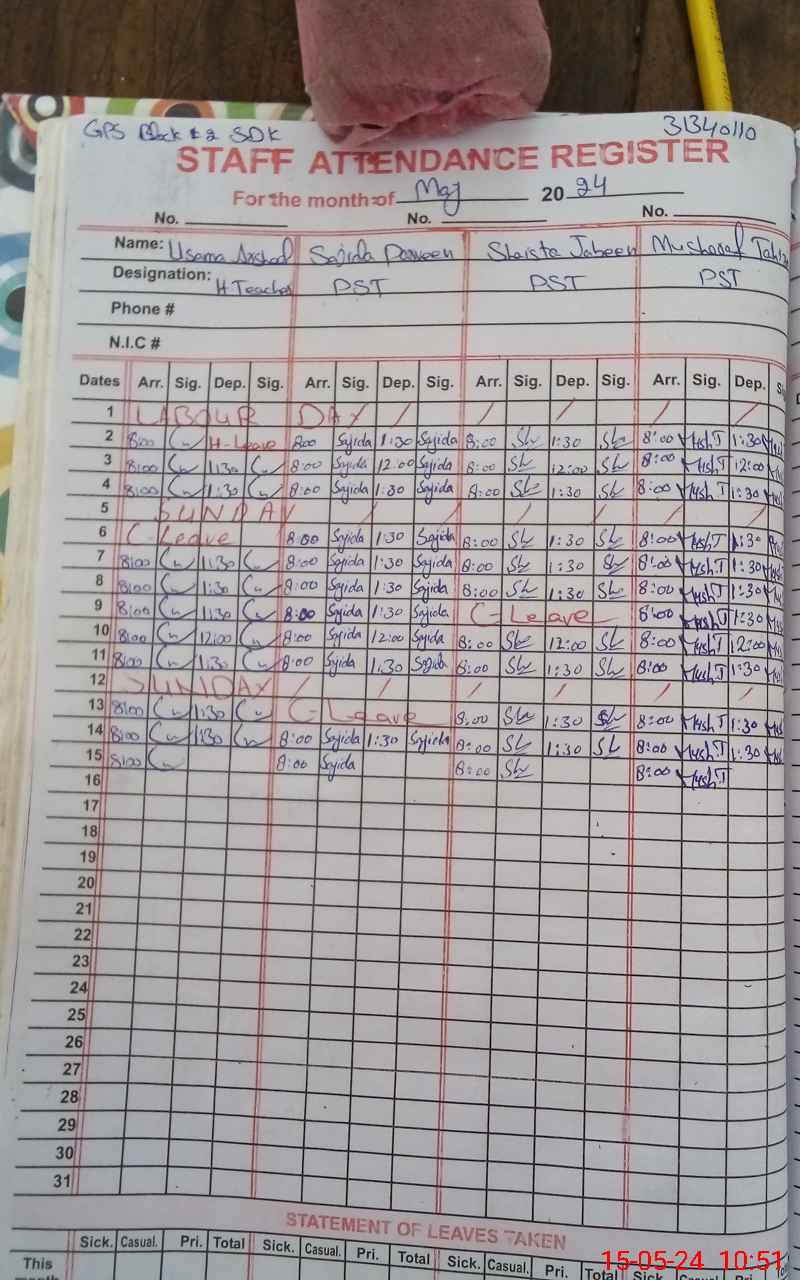 GPS Block # 2 SDK 31340110
STAFF ATTENDANCE REGISTER
For the month of May 2024
No. No. No.
Name: Usama Arshad Sajida Parveen Shaista Jabeen Musharaf
Designation: H Teacher PST PST PST
Phone #
N.I.C #
Dates Arr. Sig. Dep. Sig. Arr. Sig. Dep. Sig. Arr. Sig. Dep. Sig. Arr. Sig. Dep.
1 LABOUR DAY / / / / /
2 8:00 H-Leave 8:00 Sajida 1:30 Sajida 8:00 1:30 8:00 MshT 1:30
3 8:00 1:30 8:00 Sajida 12:00 Sajida 8:00 12:00 8:00 MshT 12:00
4 8:00 1:30 8:00 Sajida 1:30 Sajida 8:00 1:30 8:00 MshT 1:30
5 SUNDAY / / / / / /
6 C-Leave 8:00 Sajida 1:30 Sajida 8:00 1:30 8:00 MshT 1:30
7 8:00 1:30 8:00 Sajida 1:30 Sajida 8:00 1:30 8:00 MshT 1:30
8 8:00 1:30 8:00 Sajida 1:30 Sajida 8:00 1:30 8:00 MshT 1:30
9 8:00 1:30 8:00 Sajida 1:30 Sajida C-Leave 8:00 MshT 1:30
10 8:00 12:00 8:00 Sajida 12:00 Sajida 8:00 12:00 8:00 MshT 12:00
11 8:00 1:30 8:00 Sajida 1:30 Sajida 8:00 1:30 8:00 MshT 1:30
12 SUNDAY / / / / / /
13 8:00 1:30 C-Leave 8:00 1:30 8:00 MshT 1:30
14 8:00 1:30 8:00 Sajida 1:30 Sajida 8:00 1:30 8:00 MshT 1:30
15 8:00 8:00 Sajida 8:00 8:00 MshT
16
17
18
19
20
21
22
23
24
25
26
27
28
29
30
31
STATEMENT OF LEAVES TAKEN
Sick. Casual. Pri. Total Sick. Casual. Pri. Total Sick. Casual. Pri. Total Sick.
This
month
15-05-24 10:51